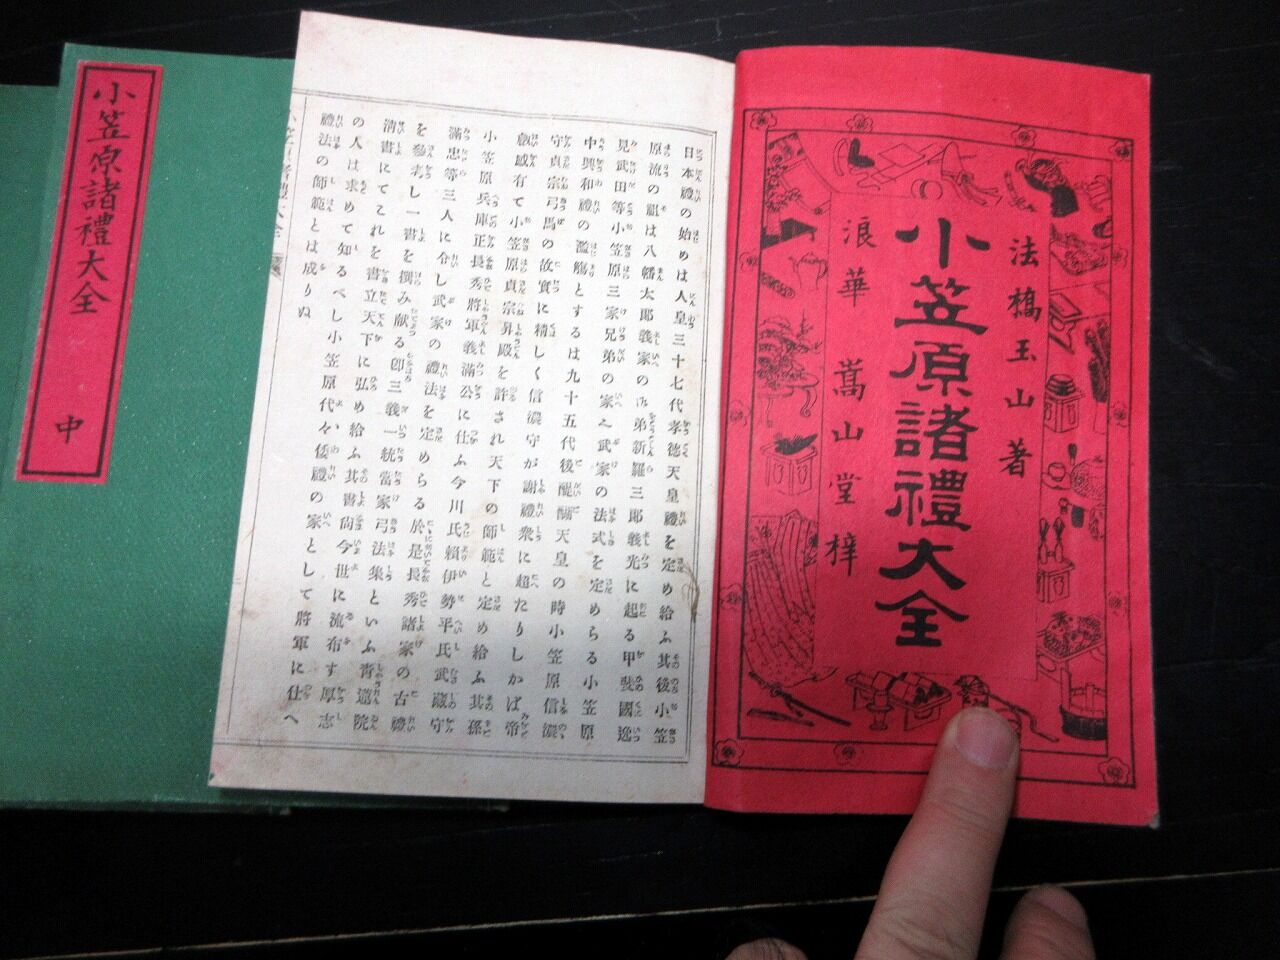 法橋玉山著
小笠原諸禮大全
浪華 嵩山堂梓
日本禮の始めは人皇三十七代孝徳天皇禮を定め給ふ其後小笠
原流の祖は八幡太郎義家の御弟新羅三郎義光に起る甲斐國逸
見武田等小笠原三家兄弟の家之武家の法式を定めらる小笠原
中興和禮の濫觴とするは九十五代後醍醐天皇の時小笠原信濃
守貞宗弓馬の故實に精しく信濃守が謝禮衆に超たりしかば帝
叡感有て小笠原貞宗昇殿を許され天下の師範と定め給ふ其孫
小笠原兵庫正長秀將軍義滿公に仕ふ今川氏賴伊勢平氏武藏守
滿忠等三人に介し武家の禮法を定めらる於是長秀諸家の古禮
を參考し一書を撰み献る卽三義一統當家弓法集といふ靑蓮院
淸書にてこれを書立天下に弘め給ふ其書尙今世に流布す厚志
の人は求めて知るべし小笠原代々倭禮の家として將軍に仕へ
禮法の師範とは成りぬ
小笠原諸禮大全
小笠原諸禮大全 中